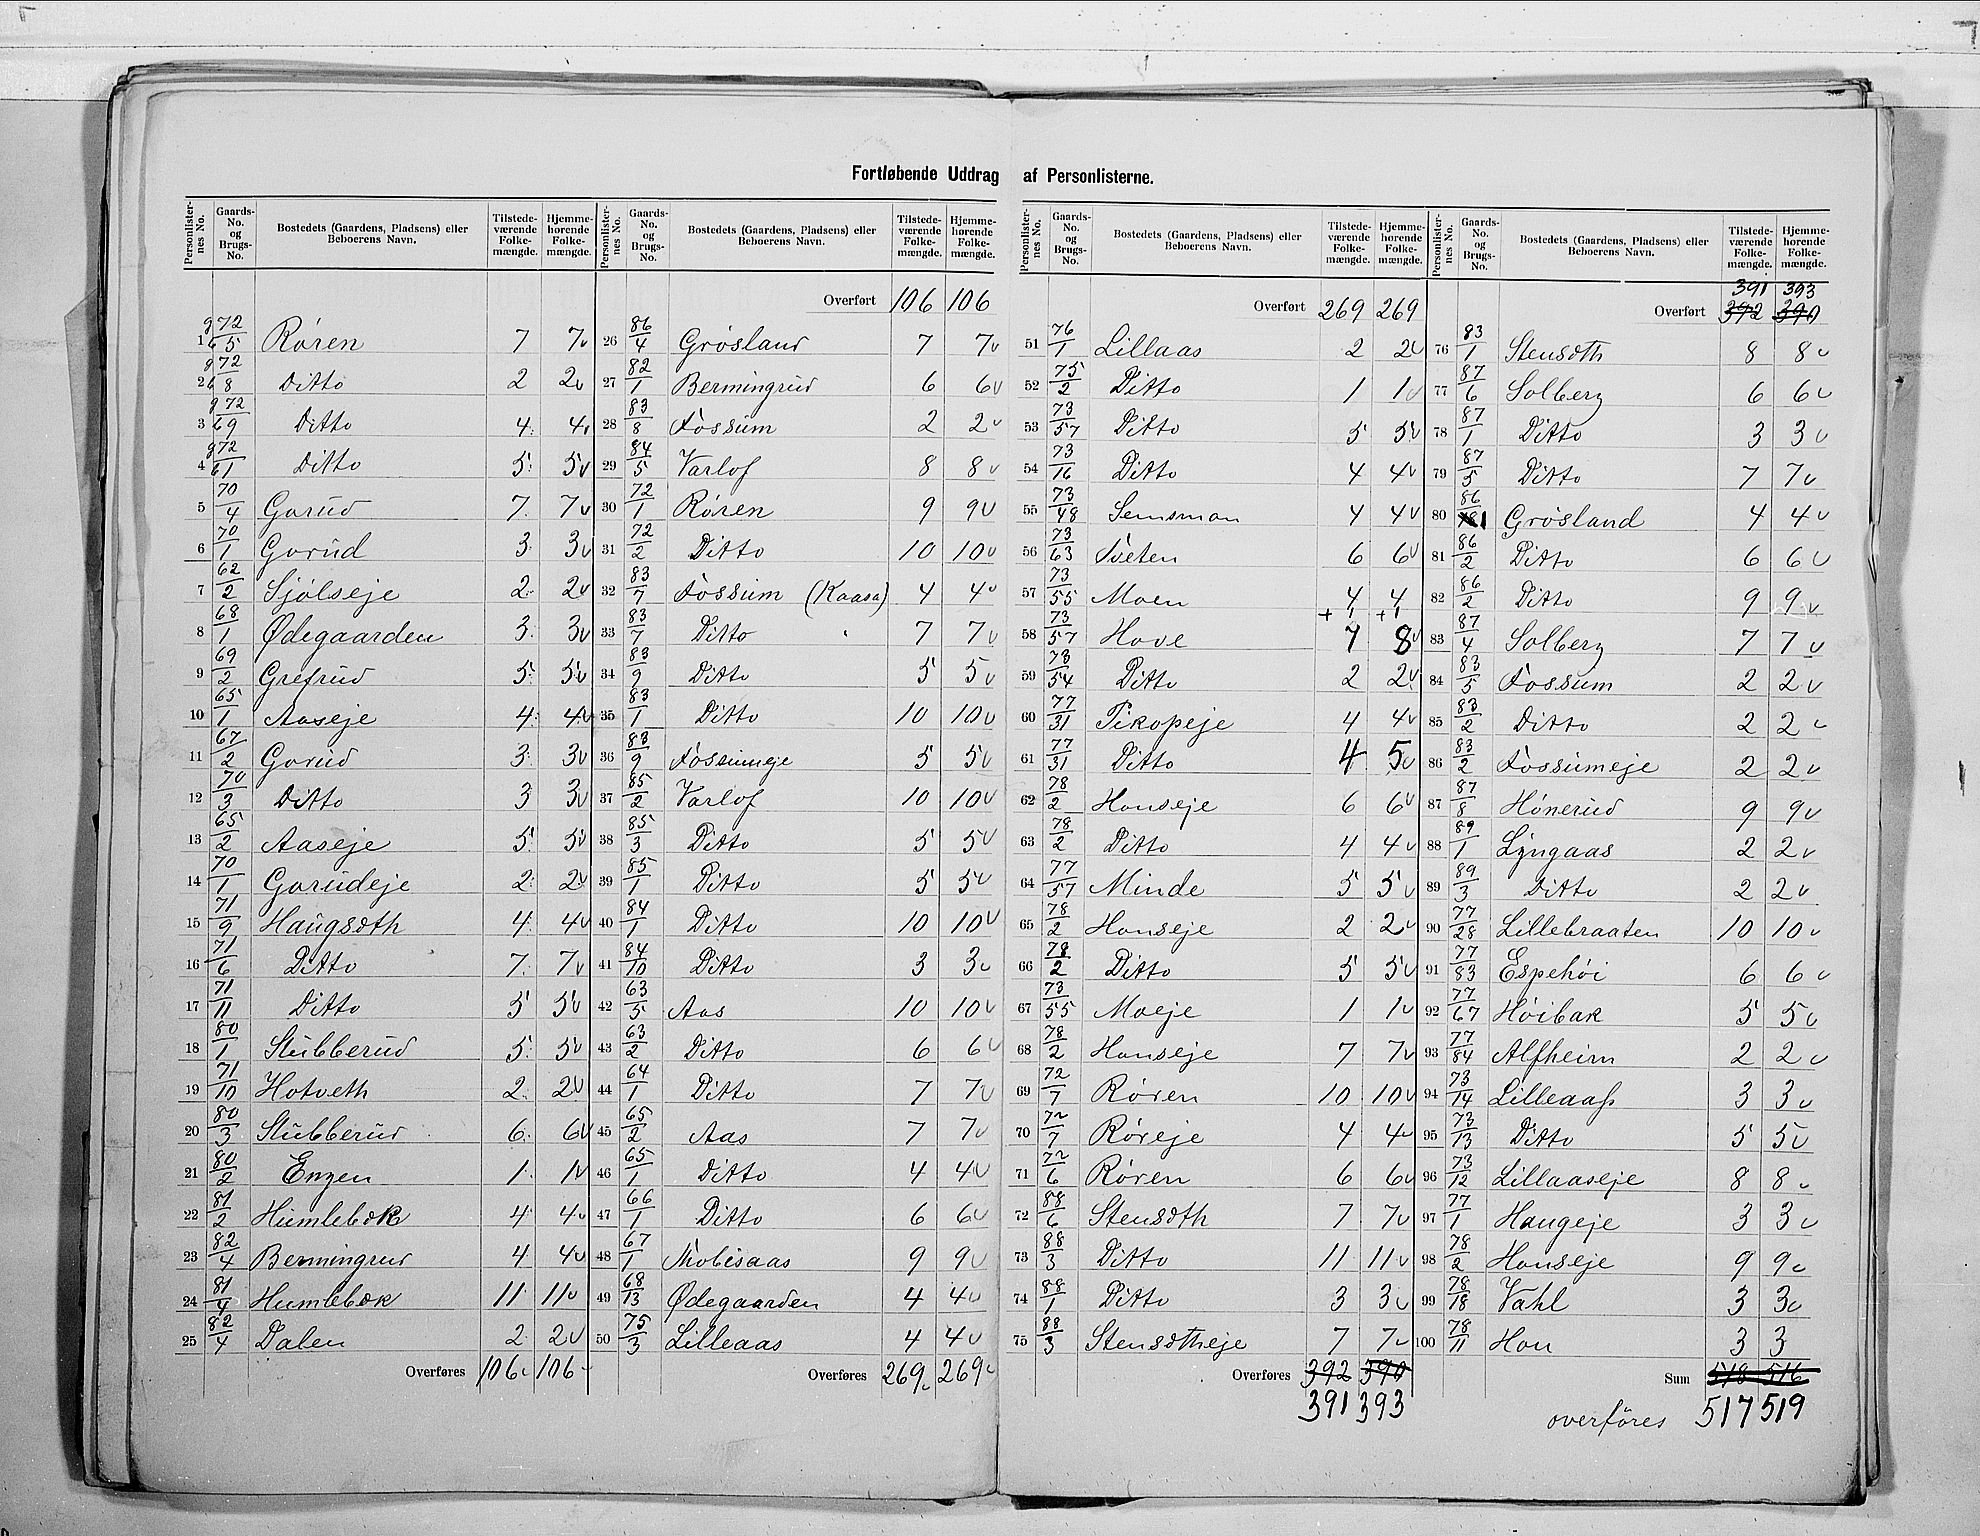 Fortløbende Uddrag af Personlisterne.
Personlister-nes No. | Gaards-No. og Brugs-No. | Bostedets (Gaardens, Pladsens) eller Beboerens Navn. | Tilstede-værende Folke-mængde. | Hjemme-hørende Folke-mængde.
1 g72/b5 Røren 7 7
2 g72/b8 Ditto 2 2
3 g72/b9 Ditto 4 4
4 g72/b1 Ditto 5 5
5 70/4 Gorud 7 7
6 70/1 Gorud 3 3
7 62/2 Sjølseje 2 2
8 68/1 Ødegaarden 3 3
9 69/2 Grefrud 5 5
10 65/1 Aaseje 4 4
11 67/2 Gorud 3 3
12 70/3 Ditto 3 3
13 65/2 Aaseje 5 5
14 70/1 Gorudeje 2 2
15 71/9 Haugsøth 4 4
16 71/6 Ditto 7 7
17 71/11 Ditto 5 5
18 80/1 Stubberud 5 5
19 71/10 Hotveth 2 2
20 80/3 Stubberud 6 6
21 80/2 Engen 1 1
22 81/2 Humlebæk 4 4
23 82/4 Bermingrud 4 4
24 81/4 Humlebæk 11 11
25 82/4 Dalen 2 2
Overføres 106 106
Personlister-nes No. | Gaards-No. og Brugs-No. | Bostedets (Gaardens, Pladsens) eller Beboerens Navn. | Tilstede-værende Folke-mængde. | Hjemme-hørende Folke-mængde.
Overført 106 106
26 86/4 Grøsland 7 7
27 82/1 Bermingrud 6 6
28 83/8 Fossum 2 2
29 84/5 Varlof 8 8
30 72/1 Røren 9 9
31 72/2 Ditto 10 10
32 83/7 Fossum (Kaasa) 4 4
33 83/7 Ditto 7 7
34 83/9 Ditto 5 5
35 83/1 Ditto 10 10
36 83/9 Fossumeje 5 5
37 85/2 Varlof 10 10
38 85/3 Ditto 5 5
39 85/1 Ditto 5 5
40 84/1 Ditto 10 10
41 84/10 Ditto 3 3
42 63/5 Aas 10 10
43 63/2 Ditto 6 6
44 64/1 Ditto 7 7
45 65/2 Aas 7 7
46 65/1 Ditto 4 4
47 66/1 Ditto 6 6
48 67/1 9 9
49 68/13 Ødegaarden 4 4
50 75/3 Lilleaas 4 4
Overføres 269 269
Personlister-nes No. | Gaards-No. og Brugs-No. | Bostedets (Gaardens, Pladsens) eller Beboerens Navn. | Tilstede-værende Folke-mængde. | Hjemme-hørende Folke-mængde.
Overført 269 269
51 76/1 Lillaas 2 2
52 75/2 Ditto 1 1
53 73/57 Ditto 5 5
54 73/16 Ditto 4 4
55 73/48 Semsmon 4 4
56 73/63 Tveten 6 6
57 73/55 Moen 4 4
+1 +1
58 73/57 Hove 7 8
59 73/54 Ditto 2 2
60 77/31 Pikopeje 4 4
61 77/31 Ditto 4 5
62 78/2 Honseje 6 6
63 78/2 Ditto 4 4
64 77/57 Minde 5 5
65 78/2 Honseje 2 2
66 78/2 Ditto 5 5
67 73/55 Moeje 1 1
68 78/2 Honseje 7 7
69 72/7 Røren 10 10
70 72/7 Røreje 4 4
71 72/6 Røren 6 6
72 88/6 Stensøth 7 7
73 88/3 Ditto 11 11
74 88/1 Ditto 3 3
75 88/3 Stensøtheje 7 7
Overføres 392 390
391 393
Personlister-nes No. | Gaards-No. og Brugs-No. | Bostedets (Gaardens, Pladsens) eller Beboerens Navn. | Tilstede-værende Folke-mængde. | Hjemme-hørende Folke-mængde.
391 393
Overført 392 390
76 83/1 Stensøth 8 8
77 87/6 Solberg 6 6
78 87/1 Ditto 3 3
79 87/5 Ditto 7 7
80 86/1 Grøsland 4 4
81 86/2 Ditto 6 6
82 86/2 Ditto 9 9
83 87/4 Solberg 7 7
84 83/5 Fossum 2 2
85 83/2 Ditto 2 2
86 83/2 Fossumeje 2 2
87 87/8 Hønerud 9 9
88 89/1 Lyngaas 2 2
89 89/3 Ditto 2 2
90 77/28 Lillebraaten 10 10
91 77/83 Espehøi 6 6
92 77/67 Høibak 5 5
93 77/84 Alfheim 2 2
94 73/14 Lilleaas 3 3
95 73/13 Ditto 5 5
96 73/12 Lillaaseje 8 8
97 77/1 Haugeje 3 3
98 78/2 Honseje 9 9
99 78/18 Vahl 3 3
100 78/11 Hon 3 3
Sum 518 516
overføres 517 519